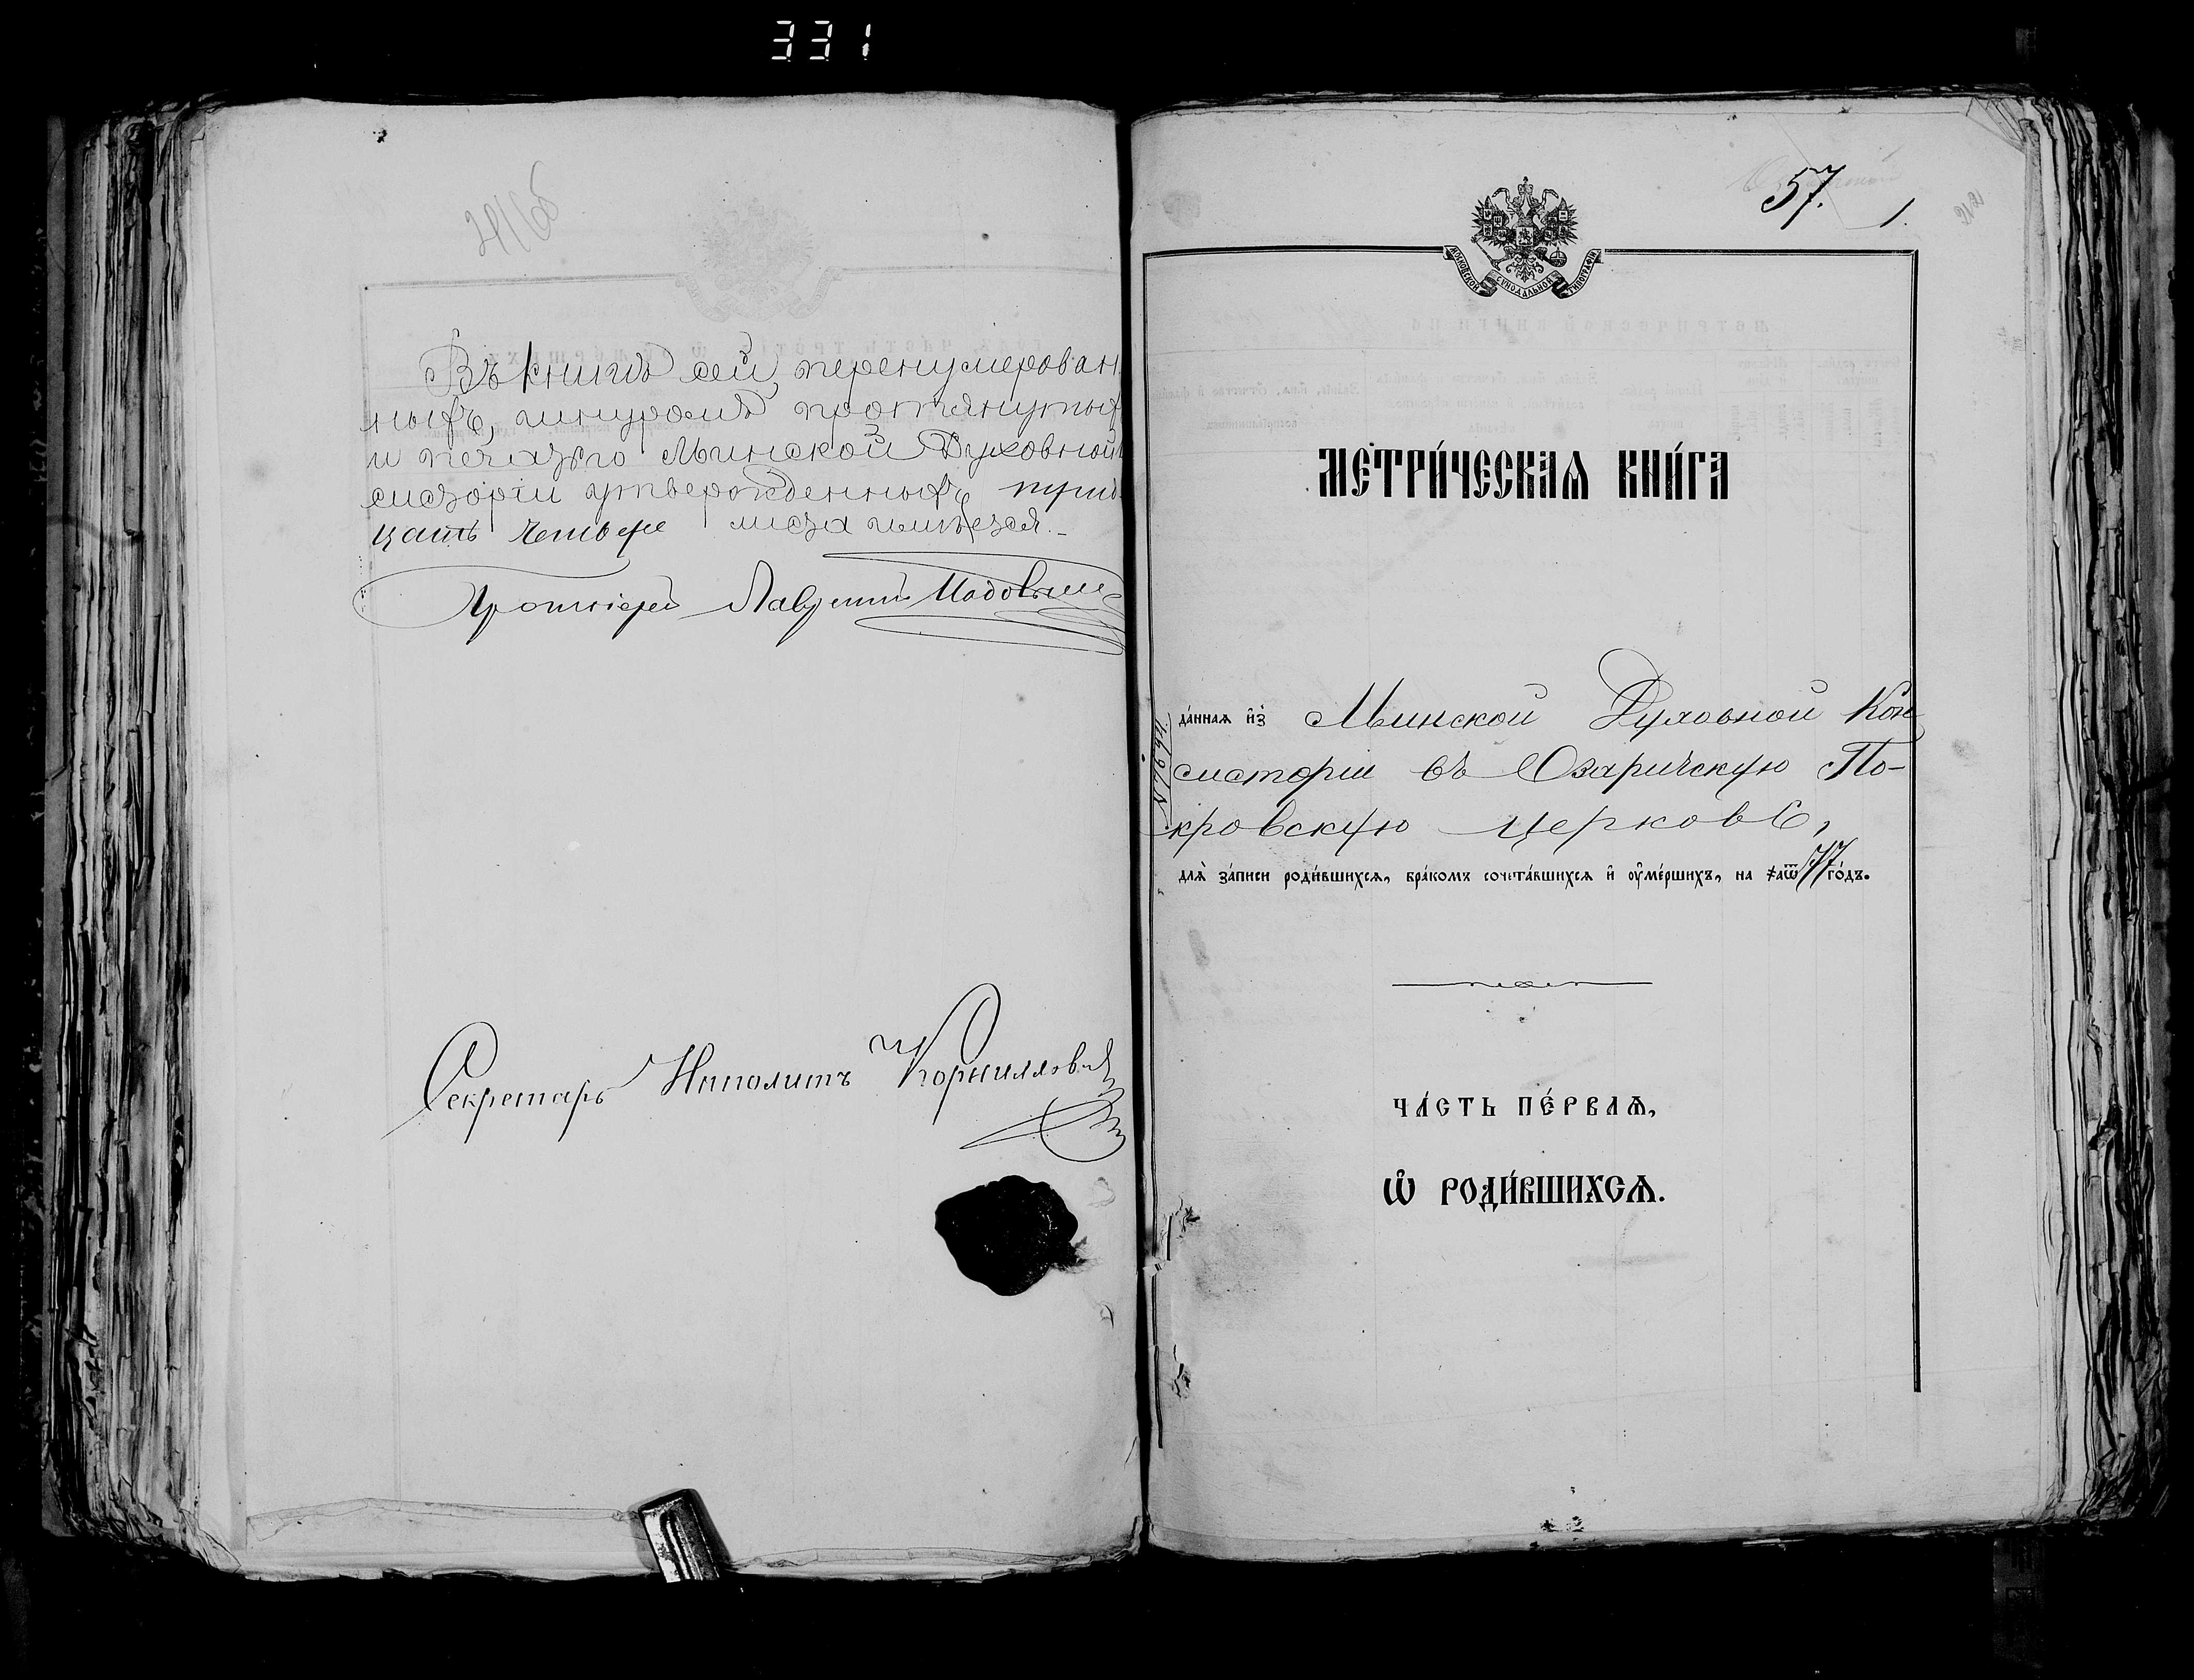 331
Въ книгѣ сей, перенумерован
ныхъ, шнуромъ протянутыхъ
и печатью Минской Духовной
систоріи утвержденныхъ трид
цать четыре листа имѣется.
Протоіерей
Секретарь Ипполитъ
57.
1.
212
МОСКОВСКОЙ СУНОДАЛЬНОЙ ТИПОГРАФІИ
МЕТРИ́ЧЕСКАѦ КНИ́ГА
да́ннаѧ и҆з̾ Минской Духовной Кон
систоріи въ Озаричскую По-
кровскую церковь,
длѧ̀ за́писи роди́вшихсѧ, бра́комъ сочета́вшихсѧ и҆ оу҆ме́ршихъ, на ҂аѿ77 го́дъ.
ЧА́СТЬ ПЕ́РВАѦ,
Ѡ҆ РОДИ́ВШИХСѦ.